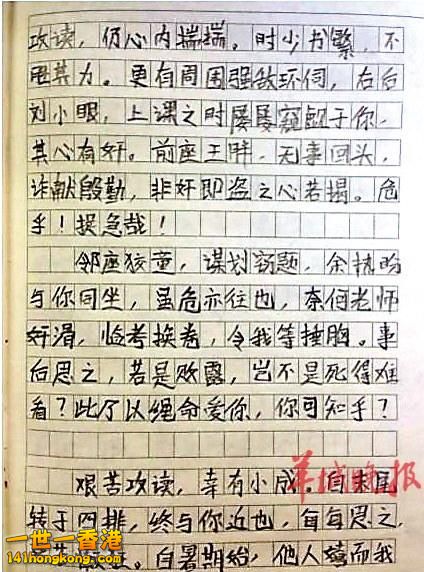 攻读，仍心内惴惴。时少书繁，不
胜其力。更有周围强敌环伺，右后
刘小眼，上课之时屡屡窥觎于你，
其心有奸。前座王胖，无事回头，
诈献殷勤，非奸即盗之心若揭。危
乎！捉急哉！
邻座狡童，谋划窃题，余
与你同坐，虽危亦往也，奈何老师
奸滑，临考换卷，令我等捶胸。事
后思之，若是败露，岂不是死得难
看？此乃以绳命爱你，你可知乎？
羊城晚报
艰苦攻读，幸有小成。自末尾
转于四排，终与你近也，每每思之，
自暑期始，他人嬉而我
一世一香港
141hongkong.com